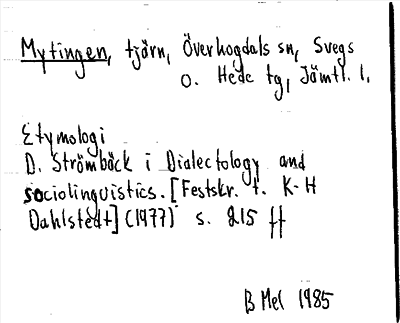 Mytingen, tjärn, Överhogdals sn, Svegs
o. Hede tg, Jämtl. l,
Etymologi
D. Strömbäck i Dialectology and
sociolinguistics. [Festskr. t. K-H
Dahlstedt] (1977) s. 215 ff
B Mel 1985